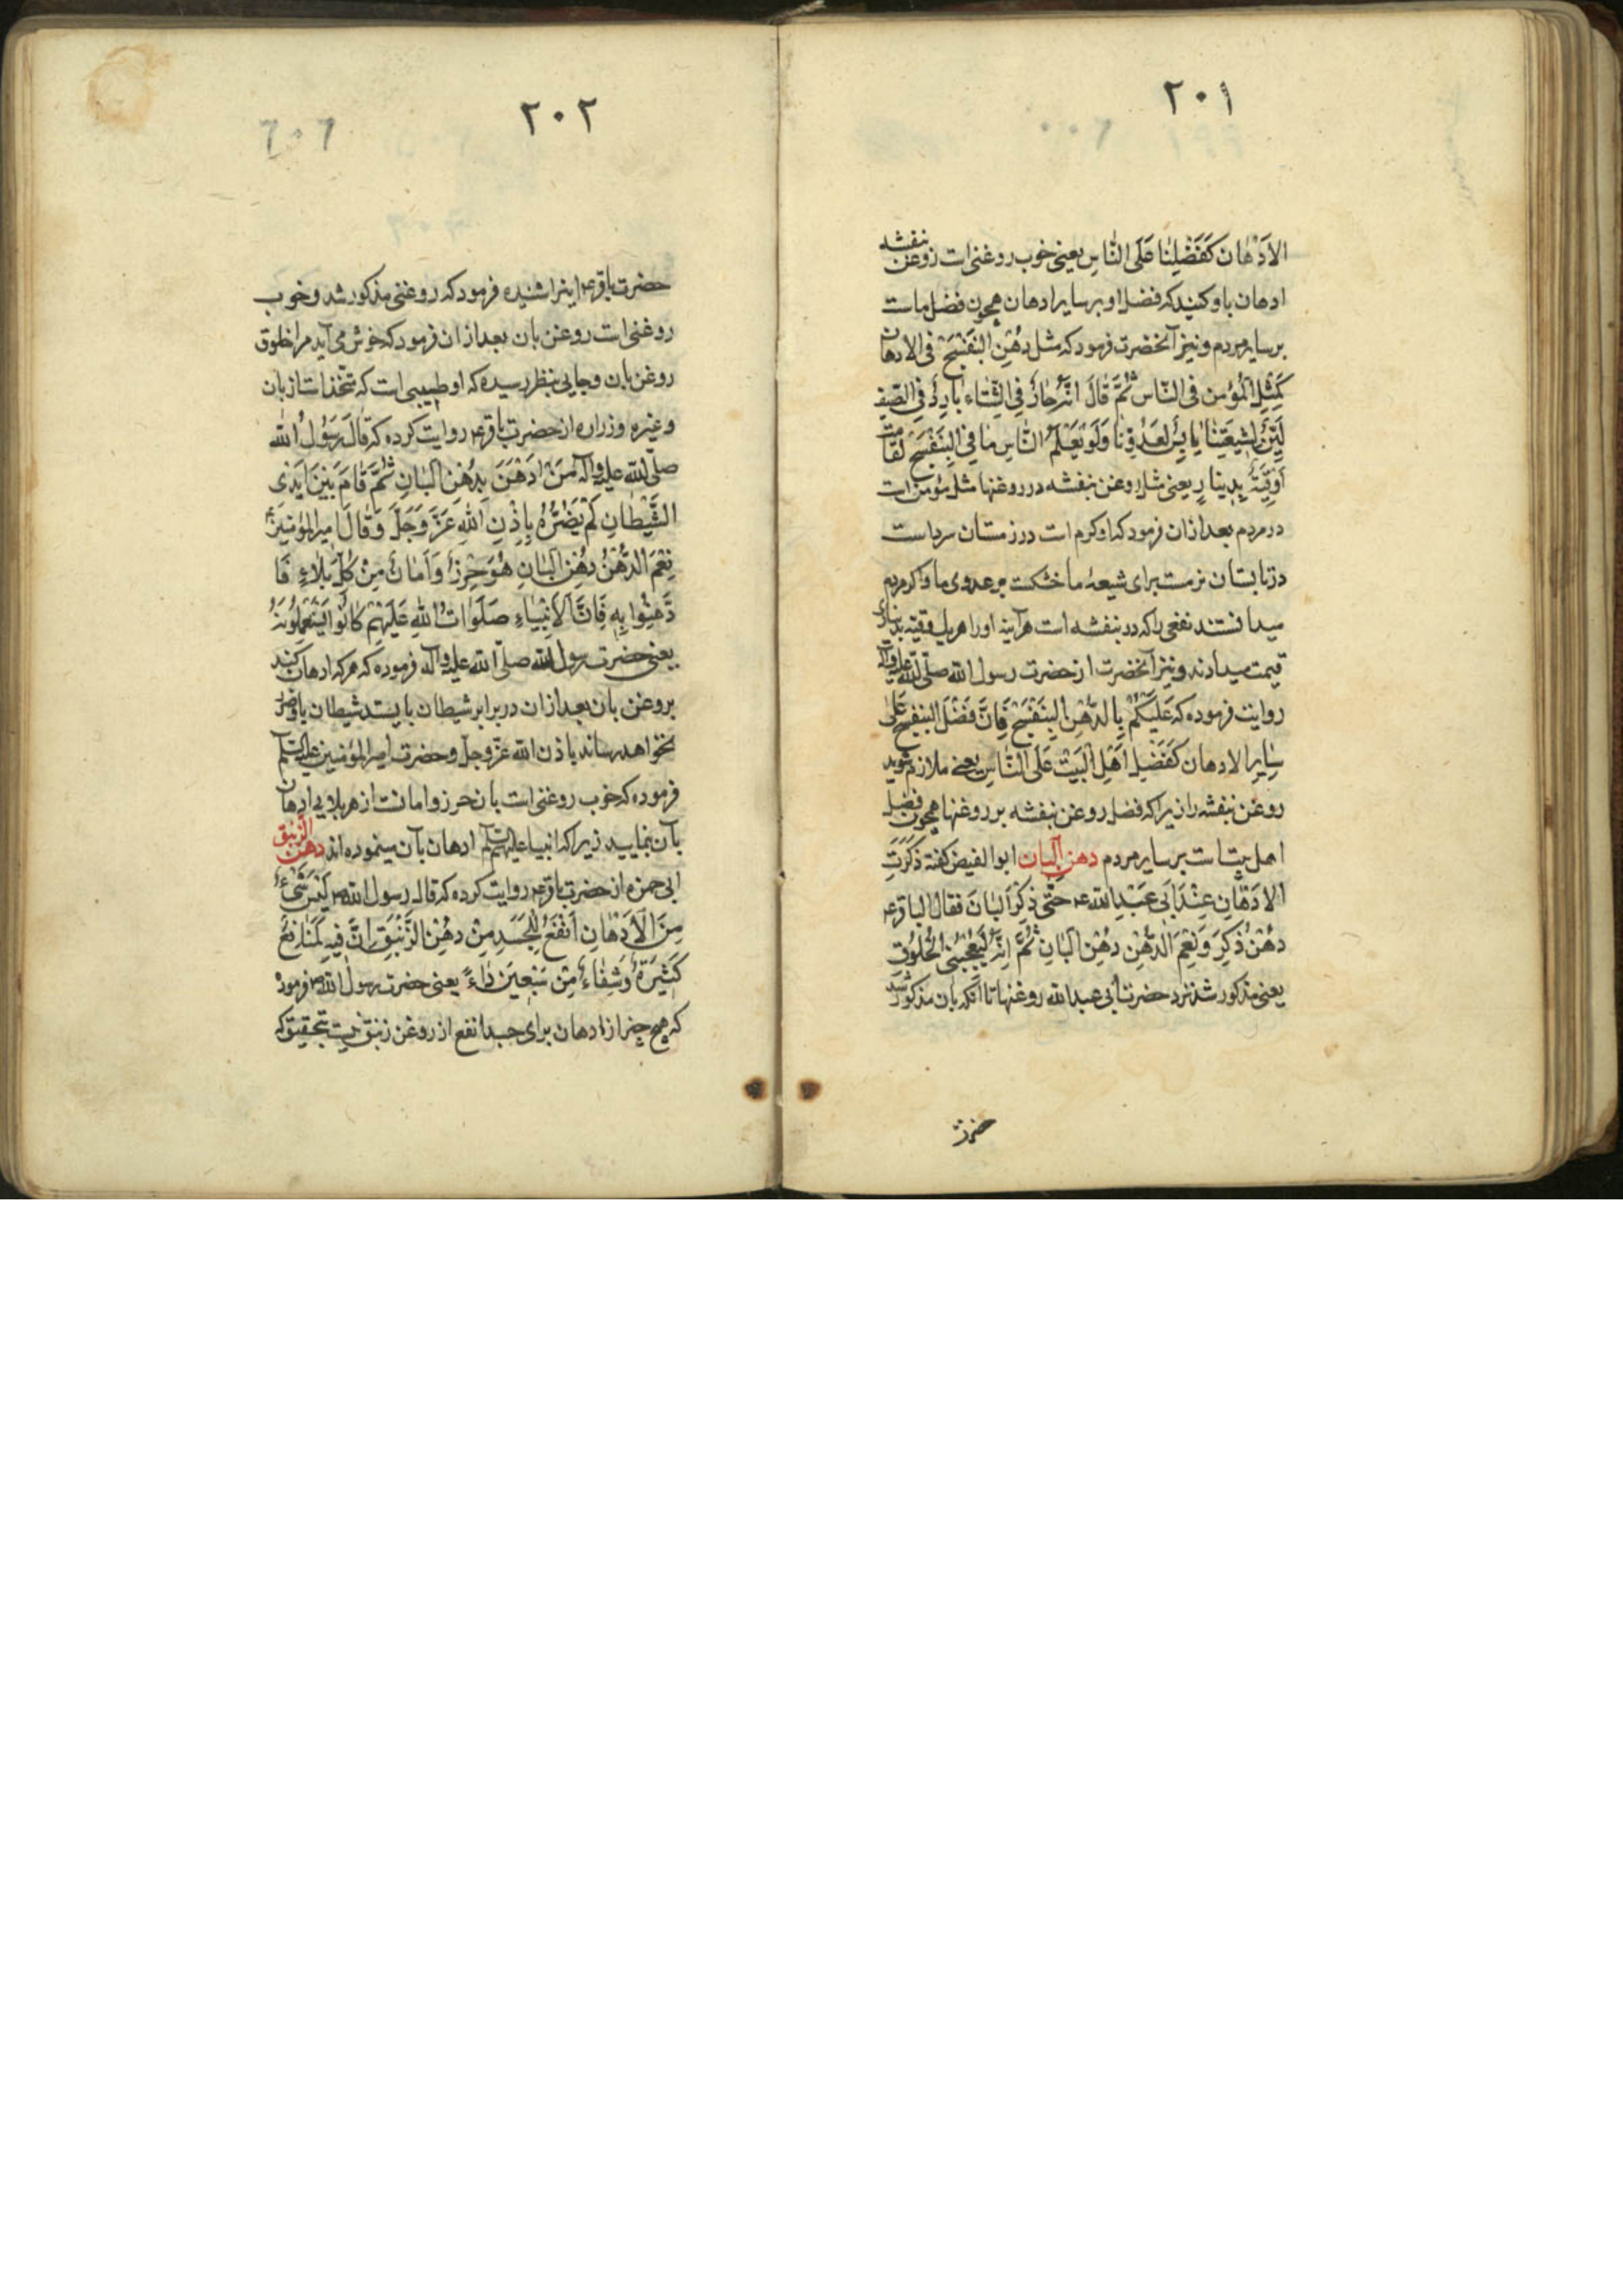 ٢٠١
الاَدْهٰان كَفَضْلِنٰا عَلَى النّٰاسِ يعنى خوب روغنى است روغن بنفشه
ادهان باو كنيد كه فضل او بر ساير ادهان همچون فضل ماست
بر ساير مردم و نيز آنحضرت فرمود كه مثل دُهْنِ البَنَفْسَجْ فى الادهان
كَمِثْلِ الْمُؤمن فى النّاس ثُمَّ قٰالَ انَّهُ حٰارٌّ فِى الشِّتٰاء بٰارِدٌ فِى الصّيف
لَيِّنٌ لِشيعَتِنٰا يٰابِسٌ لِعَدُوِّنٰا وَلَوْ يَعْلَمُ النّٰاس مٰا فِى البَنَفْسَجْ لَقٰامَتْ
اُوْقِيَّةٌ بِدينارٍ يعنى مثل روغن بنفشه در روغنها مثل مؤمن است
در مردم بعد از آن فرمود كه او كرم است در زمستان سرد است
در تابستان نرمست براى شيعهٔ ما خشكست بر عدوى ما و اكر مردم
ميدانستند نفعى را كه در بنفشه است هرآينه اورا هر يك وقيه بدينارى
قيمت ميدادند و نيز آنحضرت از حضرت رسول الله صلّى الله عليه وآله
روايت فرموده كه عَلَيْكُمْ بِالدُّهْنِ البَنَفْسَجْ فَاِنَّ فَضْلَ البَنَفْسَجْ عَلىٰ
سٰايِرِ الادهان كَفَضْلِ اَهْلِ الْبَيْت عَلَى النّٰاسِ يعنى ملازم شويد
روغن بنفشه را زيرا كه فضل روغن بنفشه بر روغنها همچون فضل
اهل بيتست بر ساير مردم دهن البان ابو الفيض كفته ذُكِرَتِ
الادهٰان عِنْدَ اَبى عَبْدِ الله ع حتّى ذكِرَ البٰانَ فقال الباقر ع
دُهْنٌ ذُكِرَ وَنِعْمَ الدُّهْنِ دُهْنِ البٰانِ ثُمَّ اِنَّهُ لَيُعْجِبُنى الْخلُوُق
يعنى مذكور شد نزد حضرت أبى عبد الله روغنها تا آنكه بان مذكور شد
حضرت
٢٠٢
حضرت باقر ع اينرا شنيده فرمود كه روغنى مذكور شد و خوب
روغنى است روغن بان بعد از ان فرمود كه خوش مى آيد مرا خلوق
روغن بان و جايى بنظر رسيده كه او طيبى است كه متّخذ است از بان
وغيره و زراره از حضرت باقر ع روايت كرده كه قٰالَ رَسُوُلُ الله
صلّى الله عليه وآله مَنْ ادَهَنَ بِدُهْنِ الْبٰانِ ثُمَّ قٰامَ بَيْنَ اَيْدى
الشَّيْطانِ لَمْ يَضُرُّهُ بِاِذْنِ اللهِ عَزَّ وَجَلَّ وَقٰالَ اميرالمؤمنينَ ع
نِعْمَ الدُّهْنُ دُهْنِ البٰانِ هُوَ حِرْزٌ وَاَمٰانٌ مِنْ كُلِّ بَلٰاءٍ فَا
دَّهِنُوا بِهِ فَاِنَّ الاَنْبيٰاءِ صَلَوٰاتُ اللهِ عَلَيْهِمْ كٰانُوا يَسْتَعْمِلُونَهُ
يعنى حضرت رسول الله صلّى الله عليه وآله فرموده كه هر كه ادهان كند
بروغن بان بعد از ان در برابر شيطان بايستد شيطان باو ضرر
نخواهد رساند باذن الله عزّ وجلّ و حضرت امير المؤمنين عليه السلم
فرموده كه خوب روغنى است بان حرز و امانست از هر بلايى ادهان
بآن بنماييد زيرا كه انبيا عليهم السلم ادهان بآن مينموده اند دهن الزنبق
ابى حمزه از حضرت باقر ع روايت كرده كه قال رسول الله ص لَيْسَ شَئٌ
مِنَ الاَدْهٰانِ اَنْفَعُ لِلْجَسَدِ مِنْ دهْنِ الزَّنْبَقِ اِنَّ فيهِ لَمَنٰافِعُ
كَثيرَةٌ وَشِفٰاءٌ مِنْ سَبْعينَ دٰاءً يعنى حضرت رسول الله ص فرمود
كه هيچ چيز از ادهان براى جسد انفع از روغن زنبق نيست بتحقيق كه